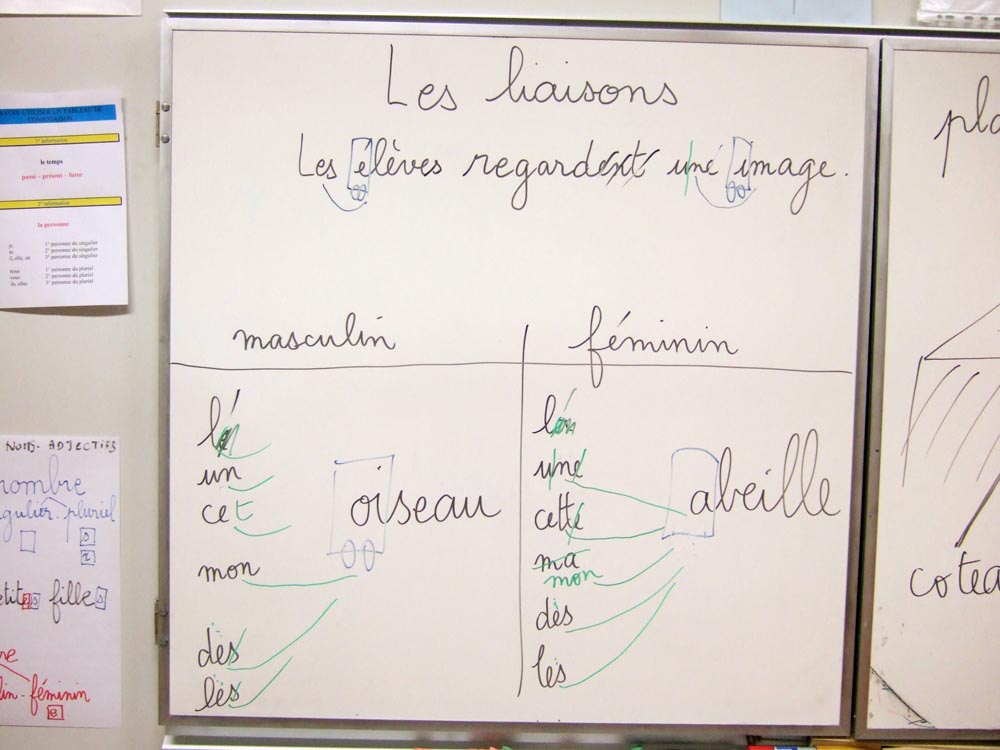 Les liaisons
Les élèves regardent une image.
masculin
féminin
l'
un
cet
mon
dès
lès
oiseau
l'
une
cette
ma
mon
dès
lès
abeille
pla
cotea
AVOIR UTILISER UN TABLEAU DE
CONJUGAISON
1° information
le temps
passé – présent – futur
2° information
la personne
je 1° personne du singulier
tu 2° personne du singulier
il, elle, on 3° personne du singulier
nous 1° personne du pluriel
vous 2° personne du pluriel
ils, elles 3° personne du pluriel
NOMS - ADJECTIFS
nombre
gulier - pluriel
s
x
etites filles
re
lin - féminin
e